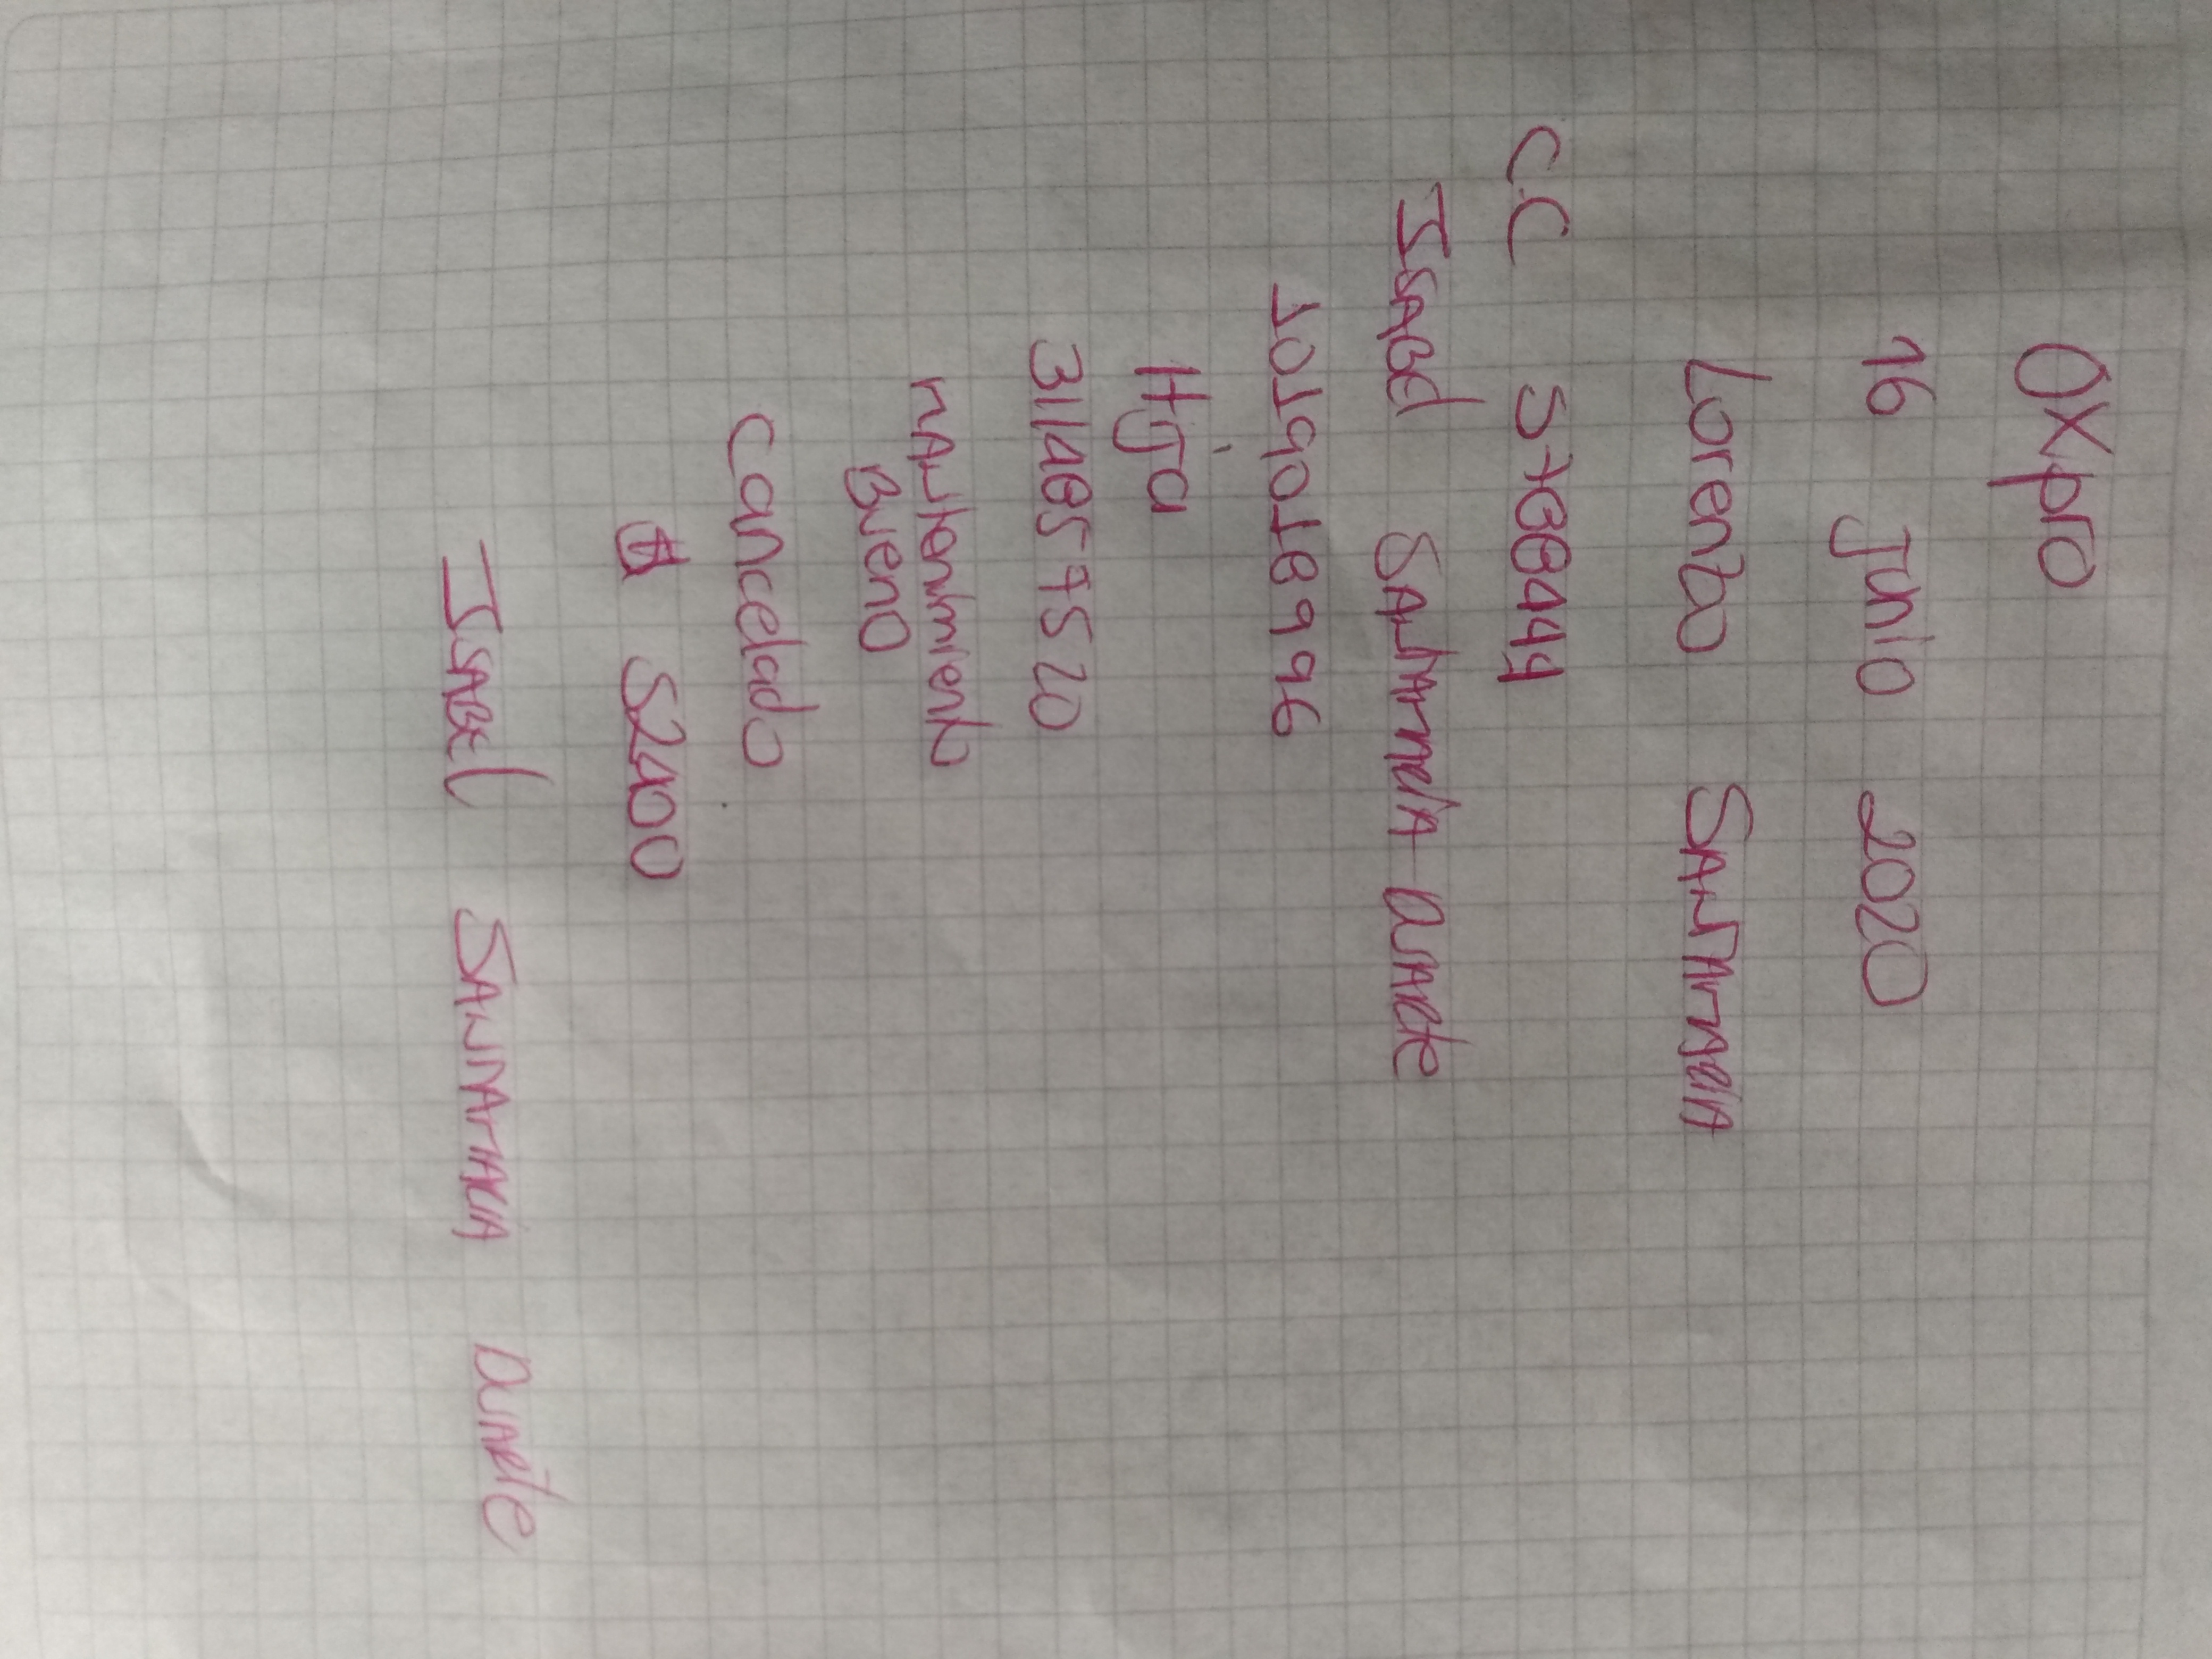 OXpro
16 Junio 2020
Lorenzo SANTAMARIA
C.C 5788449
ISABEL SANTAMARIA DUARTE
1019018996
Hija
3114857520
MANTENIMIENTO
BUENO
cancelado
$ 52400
ISABEL SANTAMARIA DUARTE